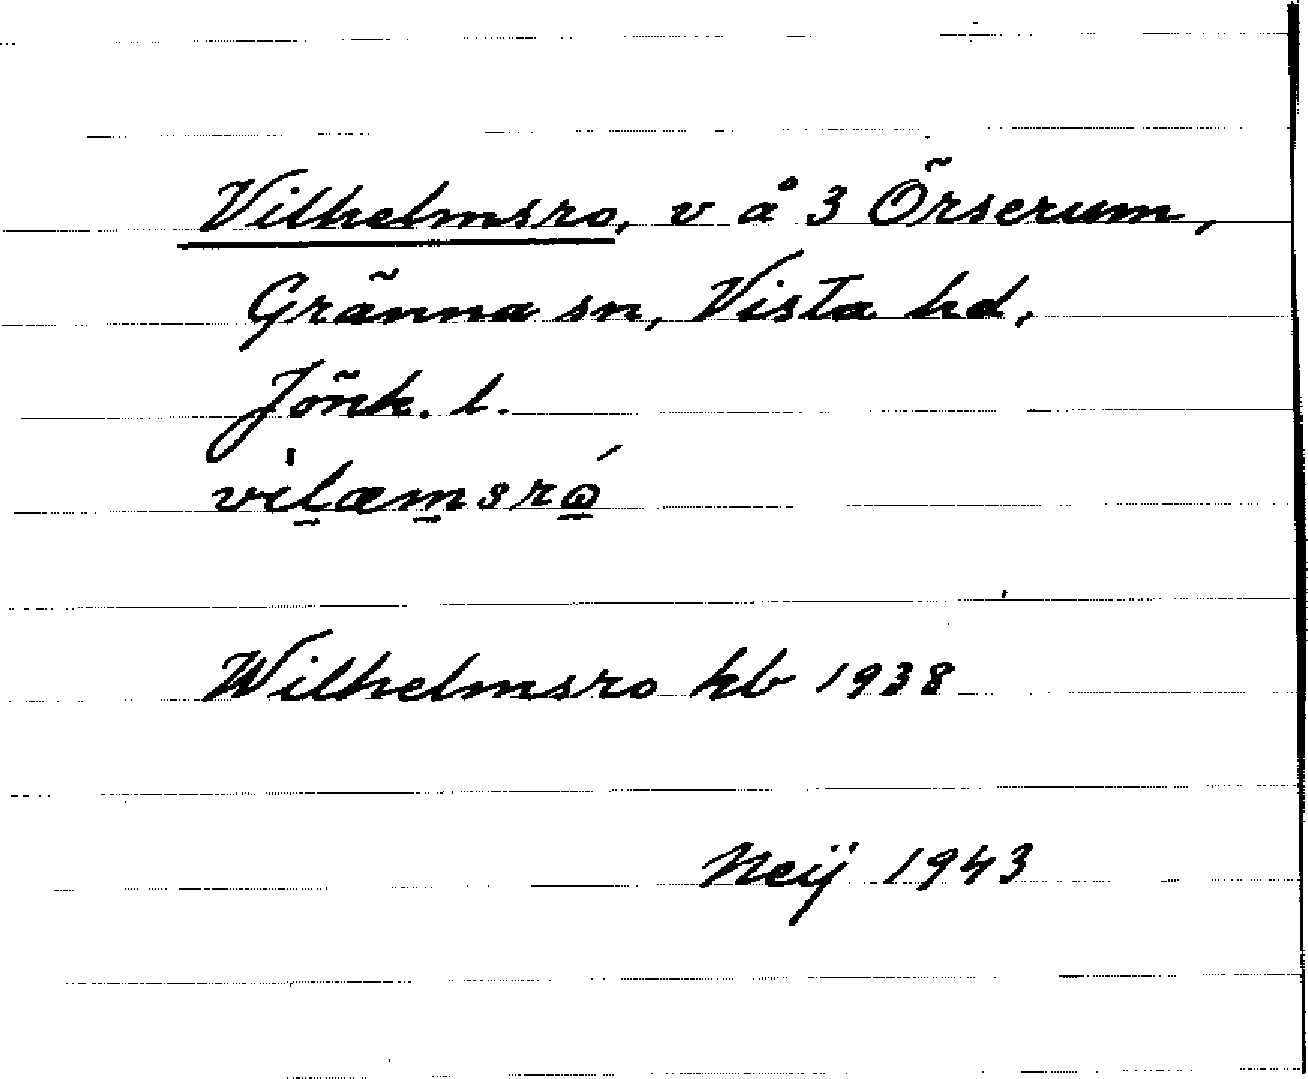 Vilhelmsro, v å 3 Örserum,
Gränna sn, Vista hd,
Jönk. l.
vi̍l̠æm̠srώ̠
Wilhelmsro kb 1938
Neij 1943